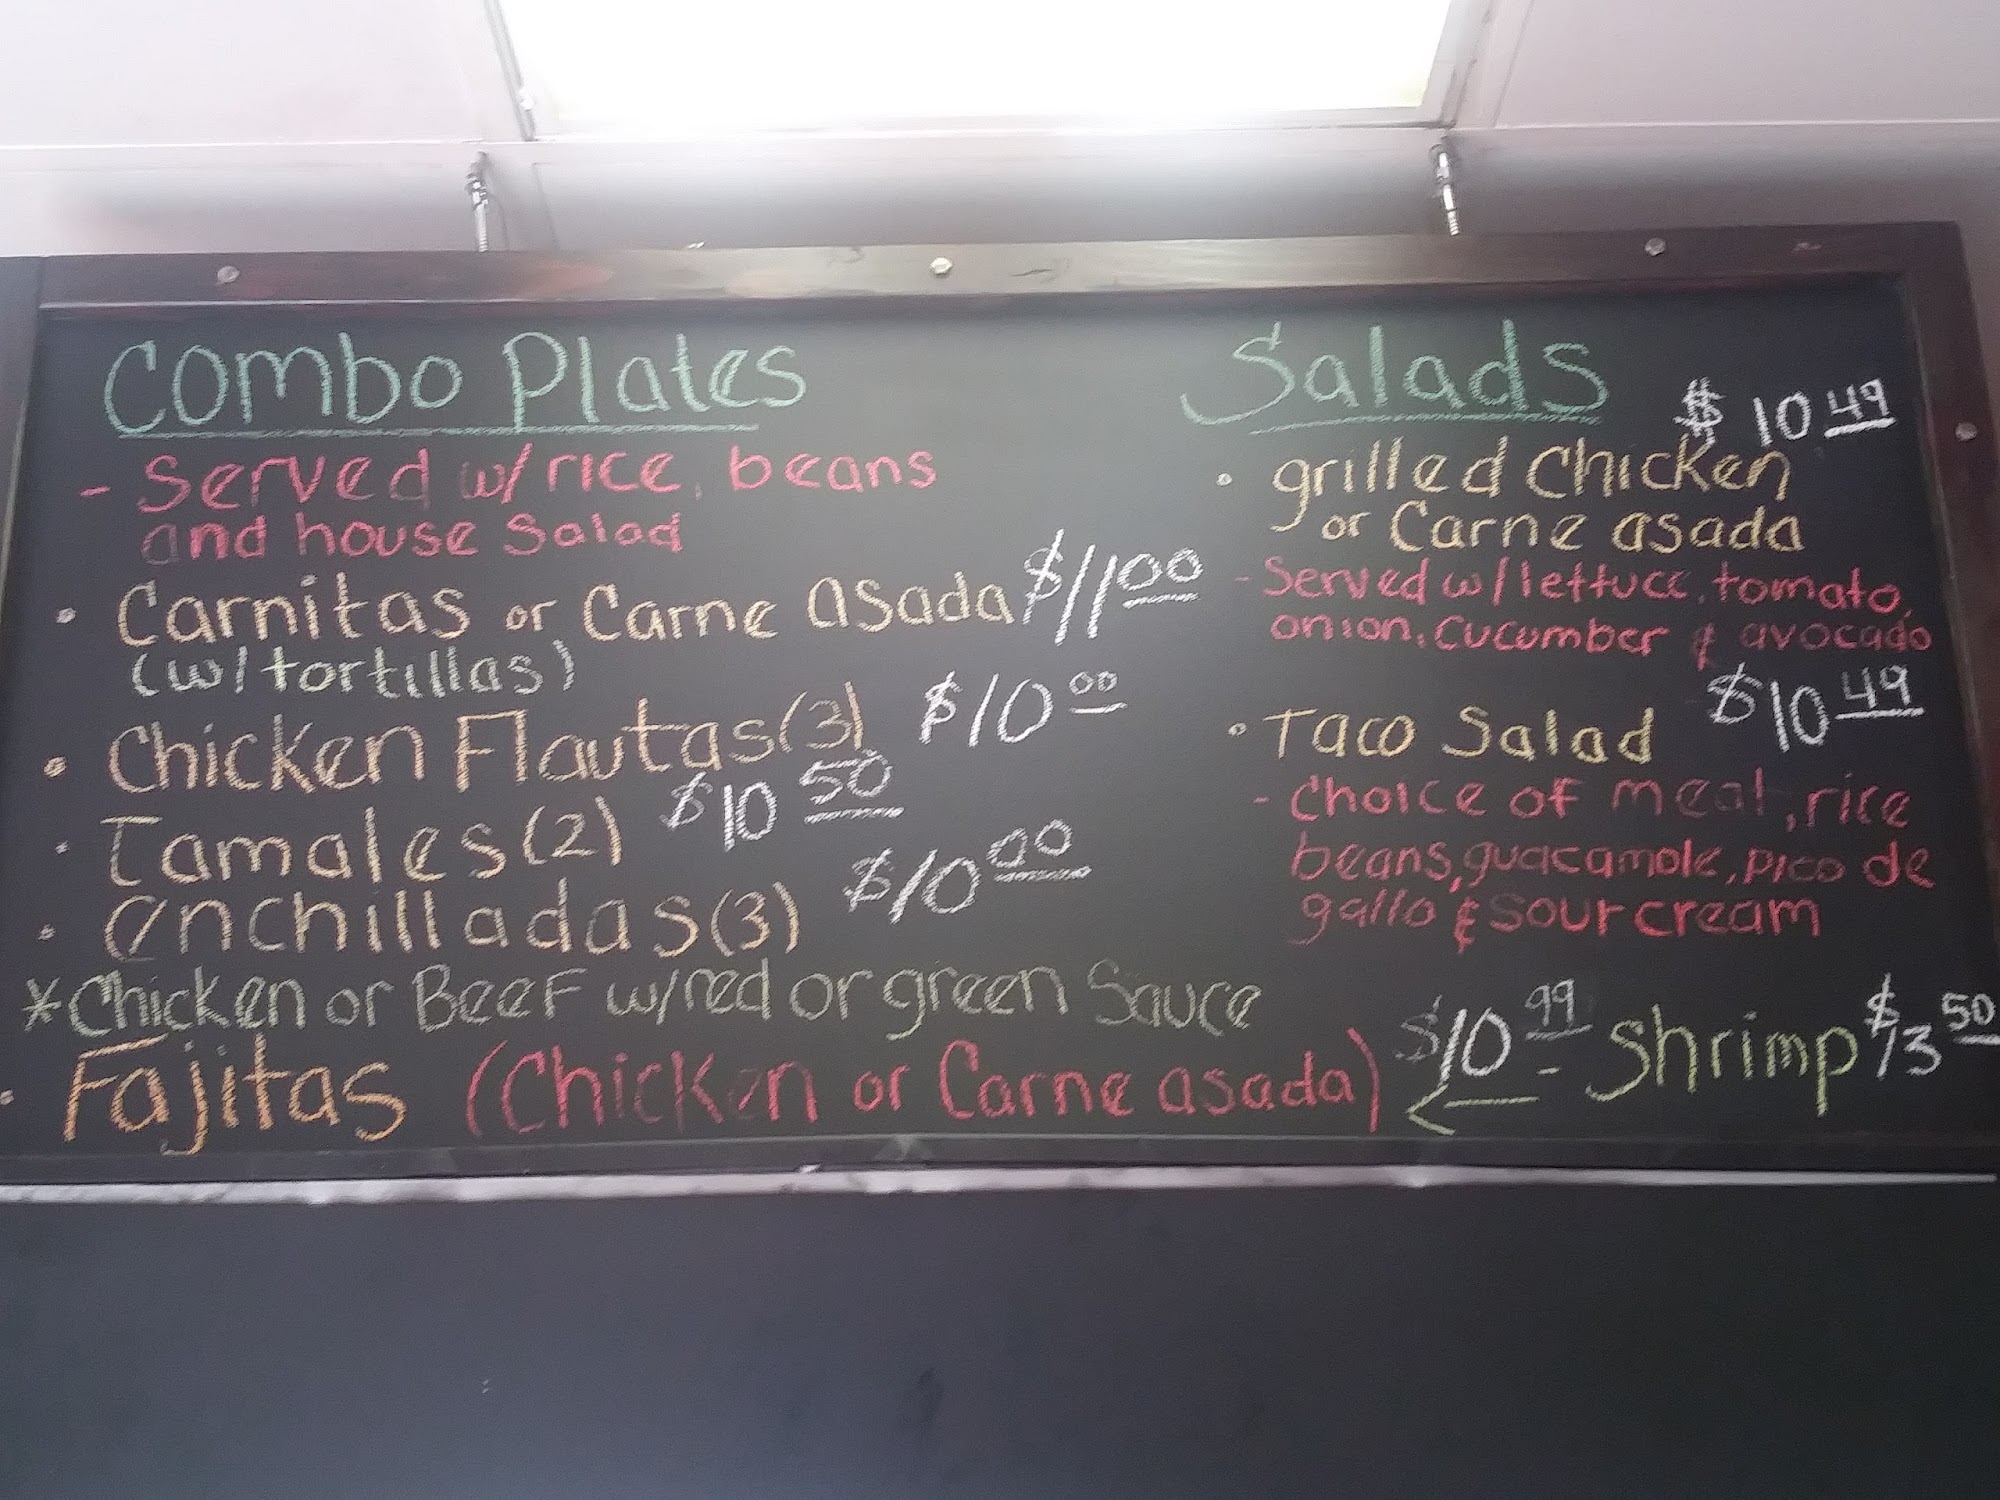 Combo Plates
- Served w/ rice, beans
and house Salad
• Carnitas or Carne asada $11.00
(w/ tortillas)
• Chicken Flautas (3) $10.00
• Tamales (2) $10.50
• enchilladas (3) $10.00
*Chicken or Beef w/red or green Sauce
• Fajitas (Chicken or Carne asada) $10.99 - Shrimp $13.50
Salads
$10.49
• grilled Chicken
or Carne asada
- Served w/ lettuce, tomato,
onion, cucumber & avocado
• Taco Salad $10.49
- Choice of meat, rice
beans, guacamole, pico de
gallo & sour cream